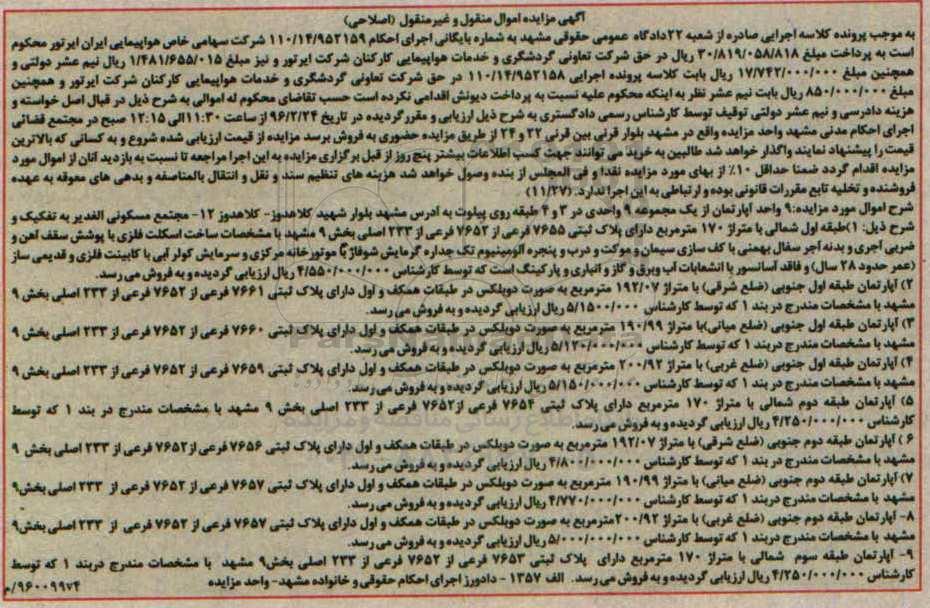 آگهی مزایده اموال منقول و غیرمنقول (اصلاحی)
به موجب پرونده کلاسه اجرایی صادره از شعبه ۲۲ دادگاه عمومی حقوقی مشهد به شماره بایگانی اجرای احکام ۱۱۰/۱۴/۹۵۲۱۵۹ شرکت سهامی خاص هواپیمایی ایران ایرتور محکوم
است به پرداخت مبلغ ۳۰/۸۱۹/۰۵۸/۸۱۸ ریال در حق شرکت تعاونی گردشگری و خدمات هواپیمایی کارکنان شرکت ایرتور و نیز مبلغ ۱/۴۸۱/۶۵۵/۰۱۵ ریال نیم عشر دولتی و
همچنین مبلغ ۱۷/۷۴۲/۰۰۰/۰۰۰ ریال بابت کلاسه پرونده اجرایی ۱۱۰/۱۴/۹۵۲۱۵۸ در حق شرکت تعاونی گردشگری و خدمات هواپیمایی کارکنان شرکت ایرتور و همچنین
مبلغ ۸۵۰/۰۰۰/۰۰۰ ریال بابت نیم عشر نظر به اینکه محکوم علیه نسبت به پرداخت دیونش اقدامی نکرده است حسب تقاضای محکوم له اموالی به شرح ذیل در قبال اصل خواسته و
هزینه دادرسی و نیم عشر دولتی توقیف توسط کارشناس رسمی دادگستری به شرح ذیل ارزیابی و مقرر گردیده در تاریخ ۹۶/۲/۲۴ از ساعت ۱۱:۳۰ الی ۱۲:۱۵ صبح در مجتمع قضائی
اجرای احکام مدنی مشهد واحد مزایده واقع در مشهد بلوار قرنی بین قرنی ۲۲ و ۲۴ از طریق مزایده حضوری به فروش برسد مزایده از قیمت ارزیابی شده شروع و به کسانی که بالاترین
قیمت را پیشنهاد نمایند واگذار خواهد شد طالبین به خرید می توانند جهت کسب اطلاعات بیشتر پنج روز از قبل برگزاری مزایده به این اجرا مراجعه تا نسبت به بازدید آنان از اموال مورد
مزایده اقدام گردد ضمنا حداقل ۱۰٪ از بهای مورد مزایده نقدا و فی المجلس از بنده وصول خواهد شد هزینه های تنظیم سند و نقل و انتقال بالمناصفه و بدهی های معوقه به عهده
فروشنده و تخلیه تابع مقررات قانونی بوده و ارتباطی به این اجرا ندارد. (۱۱/۲۷)
شرح اموال مورد مزایده: ۹ واحد آپارتمان از یک مجموعه ۹ واحدی در ۳ و ۴ طبقه روی پیلوت به آدرس مشهد بلوار شهید کلاهدوز- کلاهدوز ۱۲- مجتمع مسکونی الغدیر به تفکیک و
شرح ذیل: ۱)طبقه اول شمالی با متراژ ۱۷۰ مترمربع دارای پلاک ثبتی ۷۶۵۵ فرعی از ۷۶۵۲ فرعی از ۲۳۳ اصلی بخش ۹ مشهد با مشخصات ساخت اسکلت فلزی با پوشش سقف آهن و
ضربی آجری و بدنه آجر سفال بهمنی با کف سازی سیمان و موکت و درب و پنجره آلومینیوم تک جداره گرمایش شوفاژ با موتورخانه مرکزی و سرمایش کولر آبی با کابینت فلزی و قدیمی ساز
(عمر حدود ۲۸ سال) و فاقد آسانسور با انشعابات آب وبرق و گاز و انباری و پارکینگ است که توسط کارشناس ۴/۵۵۰/۰۰۰/۰۰۰ ریال ارزیابی گردیده و به فروش می رسد.
۲) آپارتمان طبقه اول جنوبی (ضلع شرقی) با متراژ ۱۹۲/۰۷ مترمربع به صورت دوبلکس در طبقات همکف و اول دارای پلاک ثبتی ۷۶۶۱ فرعی از ۷۶۵۲ فرعی از ۲۳۳ اصلی بخش ۹
مشهد با مشخصات مندرج در بند ۱ که توسط کارشناس ۵/۱۵۰۰/۰۰۰/۰۰۰ ریال ارزیابی گردیده و به فروش می رسد.
۳) آپارتمان طبقه اول جنوبی (ضلع میانی)با متراژ ۱۹۰/۹۹ مترمربع به صورت دوبلکس در طبقات همکف و اول دارای پلاک ثبتی ۷۶۶۰ فرعی از ۷۶۵۲ فرعی از ۲۳۳ اصلی بخش ۹
مشهد با مشخصات مندرج دربند ۱ که توسط کارشناس ۵/۱۲۰/۰۰۰/۰۰۰ ریال ارزیابی گردیده و به فروش می رسد.
۴) آپارتمان طبقه اول جنوبی (ضلع غربی) با متراژ ۲۰۰/۹۲ مترمربع به صورت دوبلکس در طبقات همکف و اول دارای پلاک ثبتی ۷۶۵۹ فرعی از ۷۶۵۲ فرعی از ۲۳۳ اصلی بخش ۹
مشهد با مشخصات مندرج در بند ۱ که توسط کارشناس ۵/۱۵۰/۰۰۰/۰۰۰ ریال ارزیابی گردیده و به فروش می رسد.
۵) آپارتمان طبقه دوم شمالی با متراژ ۱۷۰ مترمربع دارای پلاک ثبتی ۷۶۵۴ فرعی از۷۶۵۲ فرعی از ۲۳۳ اصلی بخش ۹ مشهد با مشخصات مندرج در بند ۱ که توسط
کارشناس ۴/۲۵۰/۰۰۰/۰۰۰ ریال ارزیابی گردیده و به فروش می رسد.
۶ ) آپارتمان طبقه دوم جنوبی (ضلع شرقی) با متراژ ۱۹۲/۰۷ مترمربع به صورت دوبلکس در طبقات همکف و اول دارای پلاک ثبتی ۷۶۵۶ فرعی از۷۶۵۲ فرعی از ۲۳۳ اصلی بخش ۹
مشهد با مشخصات مندرج در بند ۱ که توسط کارشناس ۴/۸۰۰/۰۰۰/۰۰۰ ریال ارزیابی گردیده و به فروش می رسد.
۷) آپارتمان طبقه دوم جنوبی (ضلع میانی) با متراژ ۱۹۰/۹۹ مترمربع به صورت دوبلکس در طبقات همکف و اول دارای پلاک ثبتی ۷۶۵۷ فرعی از ۷۶۵۲ فرعی از ۲۳۳ اصلی بخش۹
مشهد با مشخصات مندرج دربند ۱ که توسط کارشناس ۴/۷۷۰/۰۰۰/۰۰۰ ریال ارزیابی گردیده و به فروش می رسد.
۸- آپارتمان طبقه دوم جنوبی (ضلع غربی) با متراژ ۲۰۰/۹۲مترمربع به صورت دوبلکس در طبقات همکف و اول دارای پلاک ثبتی ۷۶۵۷ فرعی از ۷۶۵۲ فرعی از ۲۳۳ اصلی بخش۹
مشهد با مشخصات مندرج دربند ۱ که توسط کارشناس ۵/۰۰۰/۰۰۰/۰۰۰ ریال ارزیابی گردیده و به فروش می رسد.
۹- آپارتمان طبقه سوم شمالی با متراژ ۱۷۰ مترمربع دارای پلاک ثبتی ۷۶۵۳ فرعی از ۷۶۵۲ فرعی از ۲۳۳ اصلی بخش۹ مشهد با مشخصات مندرج دربند ۱ که توسط
کارشناس ۴/۲۵۰/۰۰۰/۰۰۰ ریال ارزیابی گردیده و به فروش می رسد. الف ۱۳۵۷ - دادورز اجرای احکام حقوقی و خانواده مشهد- واحد مزایده ۹۶۰۰۹۹۷۴/م